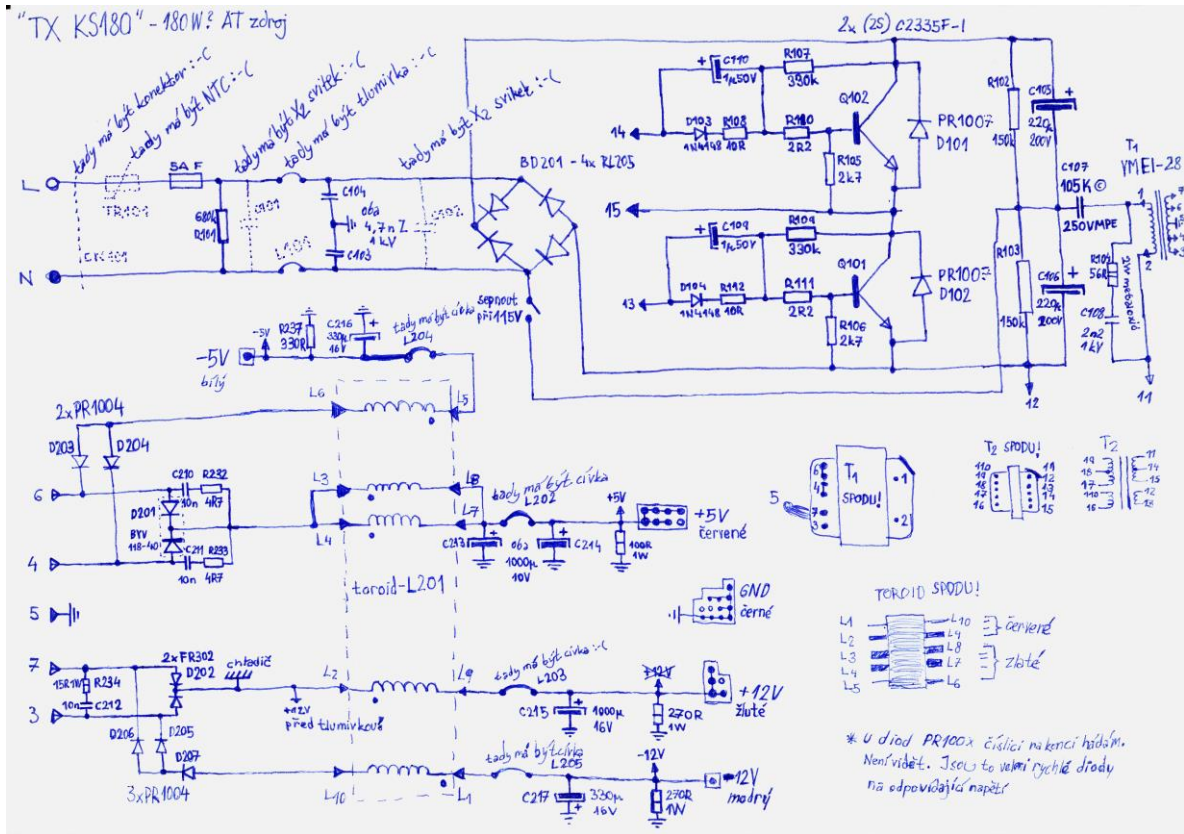 "TX KS180" - 180W? AT zdroj
2x (2S) C2335F-1
tady má být konektor :-(
tady má být NTC :-(
tady má být X2 svitek :-(
tady má být tlumivka :-(
tady má být X2 svitek :-(
L
TR101
5A F
680k
R101
C101
L101
C104
oba
4,7n Z
1 kV
C103
C102
CN101
N
BD201 - 4x RL205
sepnout
při 115V
C110
1µ50V
R107
330k
Q102
14
D103
1N4148
R108
10R
R110
2R2
R105
2k7
PR1007
D101
15
C109
1µ50V
R109
330k
Q101
13
D104
1N4148
R112
10R
R111
2R2
R106
2k7
PR1007
D102
R102
150k
C105
220µ
200V
C107
105K ©
250VMPE
T1
YMEI-28
1
2
7
6
5
4
3
R103
150k
C106
220µ
200V
R104
56R
C108
2n2
1kV
12
11
-5V
bílý
-5V
R237
330R
C216
330µ
16V
tady má být cívka
L204
2xPR1004
D203
D204
L6
L5
6
C210
10n
R232
4R7
D201
BYV
118-40
C211
10n
R233
4R7
4
L3
L8
L4
L7
tady má být cívka
L202
C213
oba
1000µ
10V
C214
+5V
100R
1W
+5V
červené
toroid-L201
5
GND
černé
7
15R1W
R234
10n
C212
3
2xFR302
D202
chladič
+12V
před tlumivkou
L2
L9
tady má být cívka :-(
L203
C215
1000µ
16V
+12V
270R
1W
+12V
žluté
D206
D205
D207
3xPR1004
L10
L1
tady má být cívka
L205
C217
330µ
16V
-12V
270R
1W
-12V
modrý
5
6
4
7
3
T1
SPODU!
1
2
T2 SPODU!
110
19
18
17
16
11
12
13
14
15
T2
19
18
17
110
16
11
14
15
12
13
TOROID SPODU!
L1
L2
L3
L4
L5
L10
L9
L8
L7
L6
červené
žluté
* U diod PR100x číslici na konci hádám.
Není vidět. Jsou to velmi rychlé diody
na odpovídající napětí